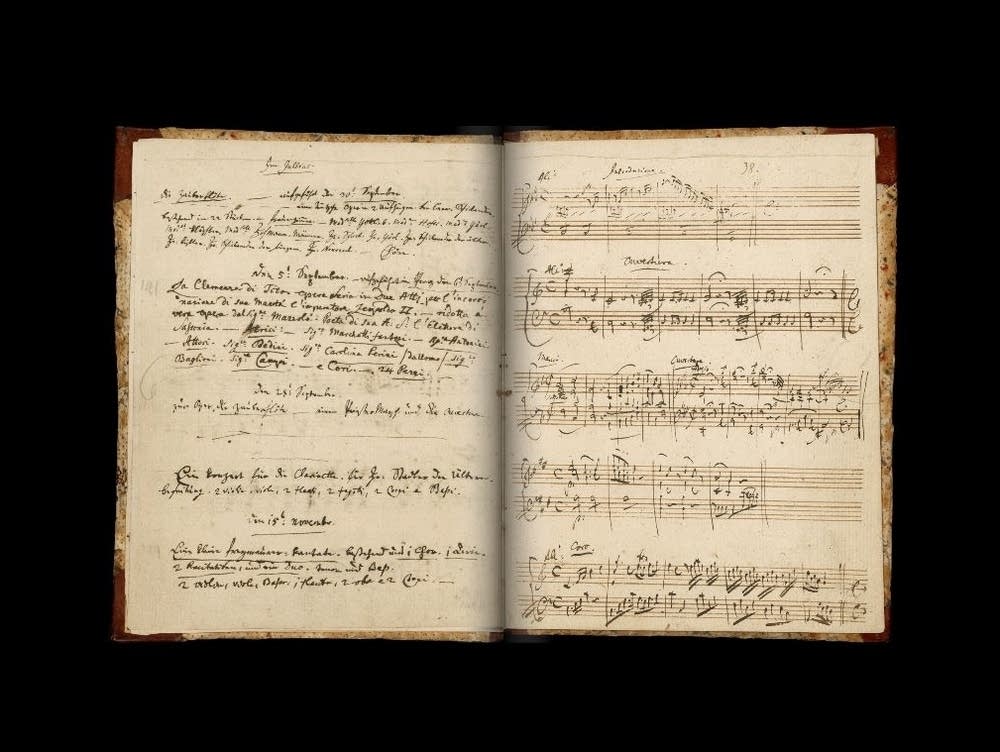 Im Jullius.
die Zauberflöte. — aufgeführt den 30:t September.
eine teutsche Oper in 2 Aufzügen. von Eman. Schikaneder.
bestehend in 22 Stücken. — frauenzimmer. — Mad:selle Gottlieb. Mad:me Hofer. Mad:me Görl.
Mad:me Klöpfler. Mad:selle Hofmann. Männer. Hr: Schack. Hr: Görl. Hr: Schikaneder der ältere.
Hr: Kistler. Hr: Schikaneder der Jüngere. Hr: Nouseul. — Chöre.
Den 5:t September. — aufgeführt in Prag den 6:t September.
La Clemenza di Tito. opera Seria in Due Atti. per l'incoro=
nazione di sua Maestà l'imperatore Leopoldo II. — ridotta á
vera opera dal Sig:re Mazzolá. Poeta di sua A: S: l'Elettore di
Sassonia. — Atrici: — Sig:ra Marchetti fantozi. — Sig:ra Antonini.
— Attori. Sig:re Bedini. Sig:ra Carolina Perini /: da uomo :/ Sig:re
Baglioni. Sig:re Campi. — e Cori. — 24 Pezzi.
Den 28:t September.
zur Oper. die Zauberflöte — einen Priestermarsch und die Ouverture.
Ein konzert für die Clarinette. für Hr: Stadler den ältern.
begleitung. 2 violin, viole, 2 flauti, 2 fagotti, 2 Corni e Baßi.
den 15:t November.
Eine kleine freymaurer-kantate. bestehend aus 1 Chor. 1 Arie.
2 Recitativen, und ein Duo. tenor und Baß.
2 violin, viole, Baßo, 1 flauto, 2 oboe e 2 Corni. —
38.
All:o Introduzione.
All:o Ouvertura.
Marcia. Ouverture
All:o Coro.